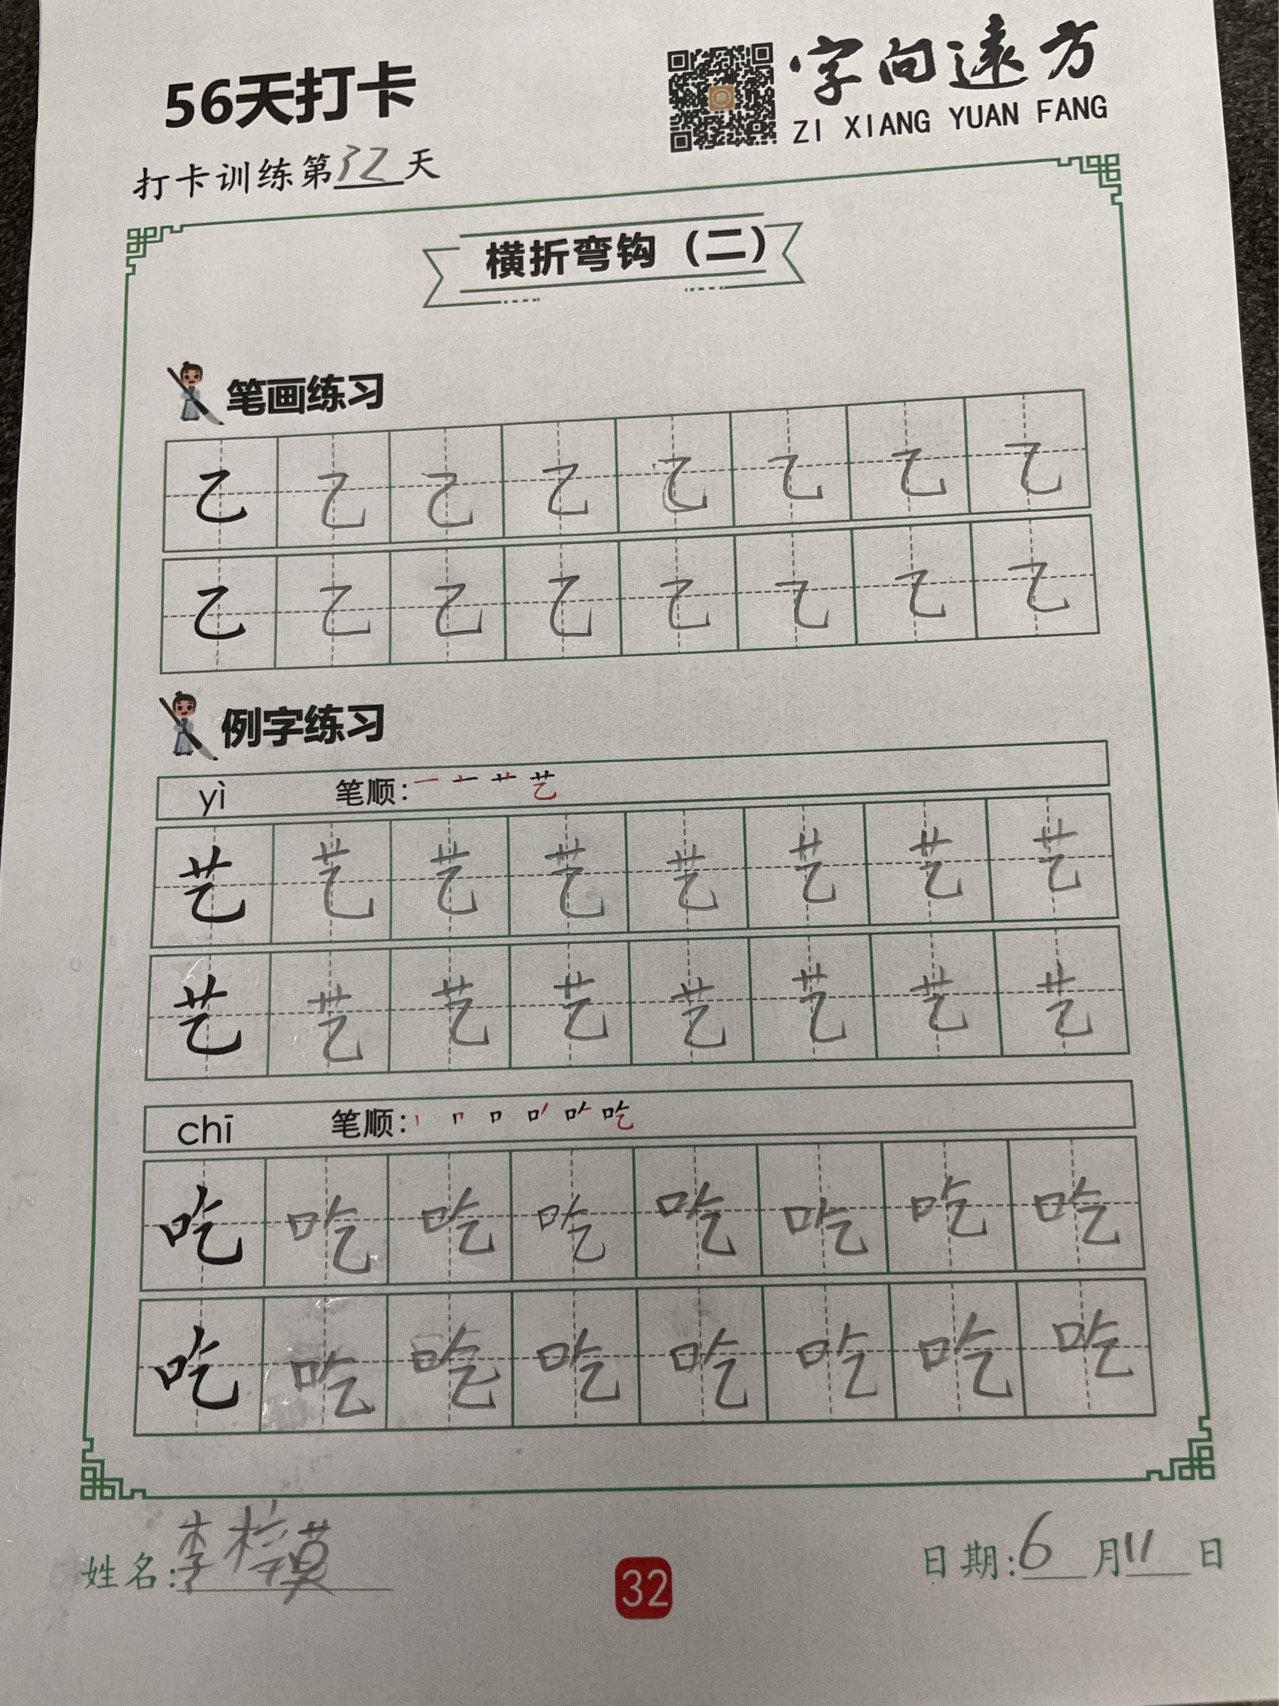 56天打卡
字向遠方
ZI XIANG YUAN FANG
打卡训练第32天
横折弯钩（二）
笔画练习
乙 乙 乙 乙 乙 乙 乙 乙
乙 乙 乙 乙 乙 乙 乙 乙
例字练习
yì 笔顺: 一 十 艹 艺
艺 艺 艺 艺 艺 艺 艺 艺
艺 艺 艺 艺 艺 艺 艺 艺
chī 笔顺: 丨 𠃍 口 吃
吃 吃 吃 吃 吃 吃 吃 吃
吃 吃 吃 吃 吃 吃 吃 吃
姓名:李梓莫
32
日期:6月11日